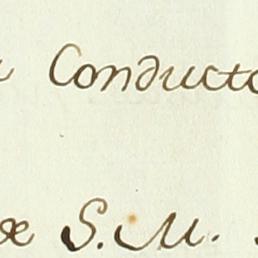 Conducto
æ S. M.